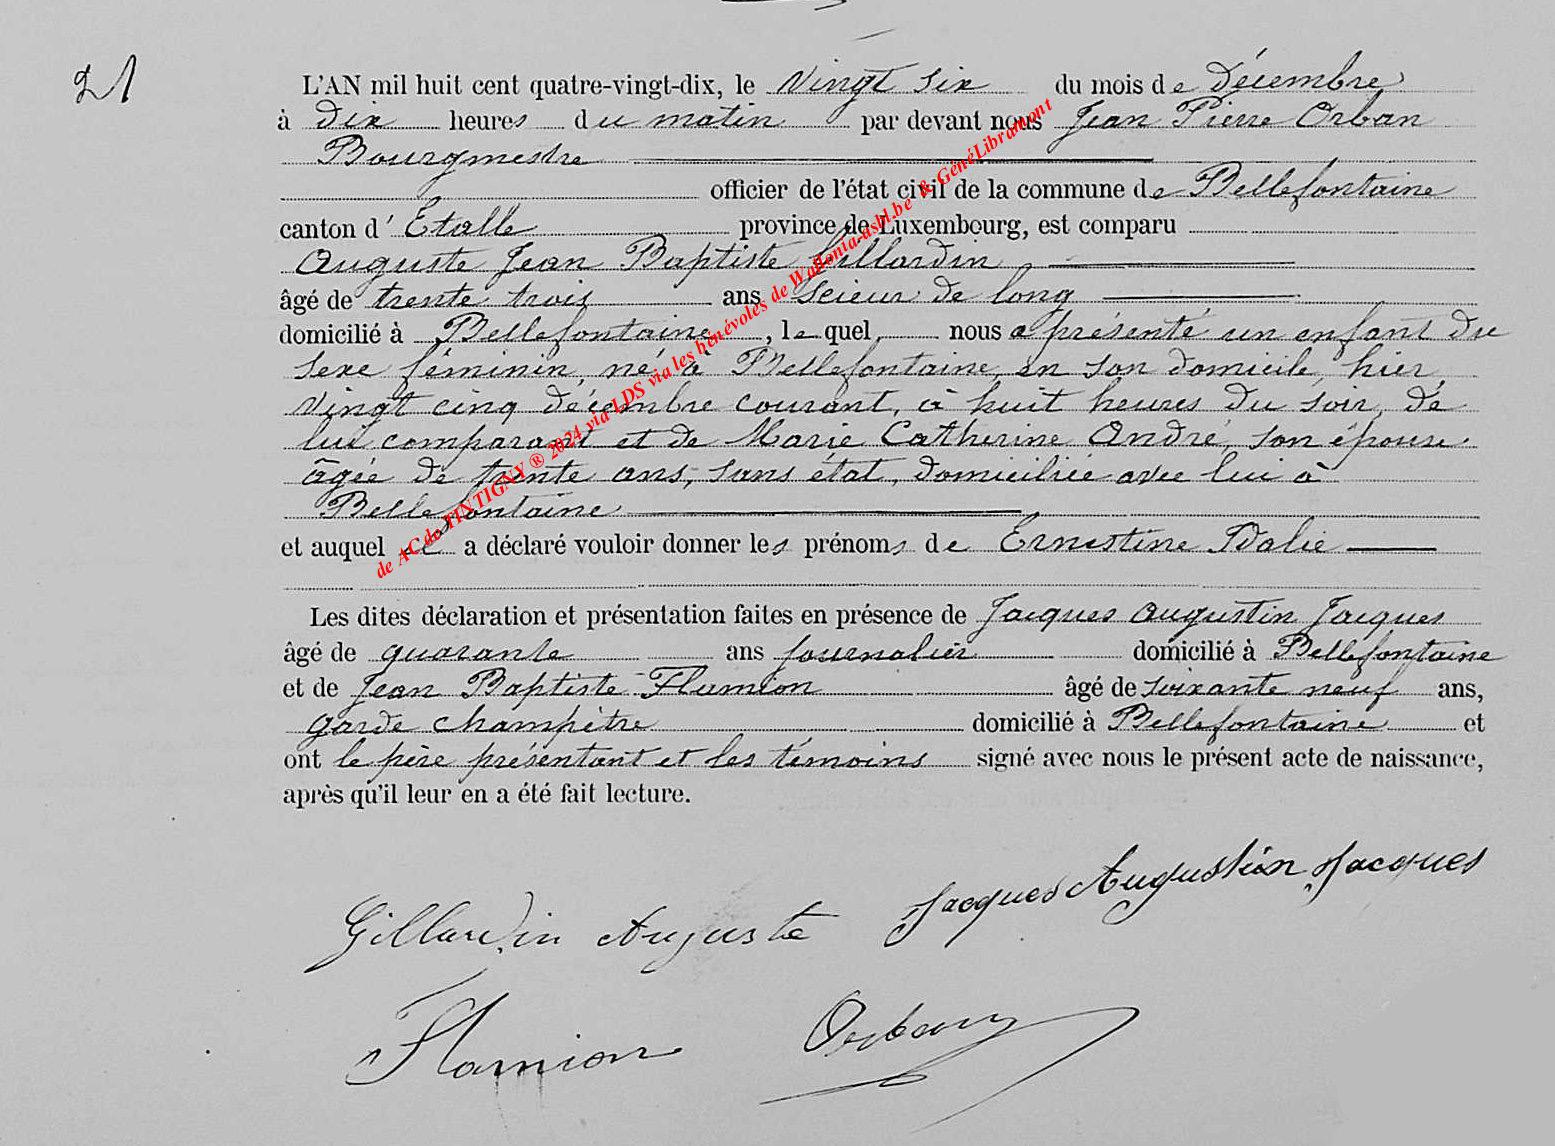 21
L'AN mil huit cent quatre-vingt-dix, le vingt six du mois de Décembre
à dix heures du matin par devant nous Jean Pierre Orban
Bourgmestre
officier de l'état civil de la commune de Bellefontaine
canton d' Etalle province de Luxembourg, est comparu
Auguste Jean Baptiste Gillardin
âgé de trente trois ans scieur de long
domicilié à Bellefontaine, lequel nous a présenté un enfant du
sexe féminin, né à Bellefontaine, en son domicile, hier
vingt cinq décembre courant, à huit heures du soir, de
lui comparant et de Marie Catherine André, son épouse,
âgée de trente ans, sans état, domiciliée avec lui à
Bellefontaine
et auquel il a déclaré vouloir donner les prénoms de Ernestine Idalie
Les dites déclaration et présentation faites en présence de Jacques Augustin Jacques
âgé de quarante ans journalier domicilié à Bellefontaine
et de Jean Baptiste Flamion âgé de soixante neuf ans,
garde champêtre domicilié à Bellefontaine et
ont le père présentant et les témoins signé avec nous le présent acte de naissance,
après qu'il leur en a été fait lecture.
Gillardin Auguste Jacques Augustin Jacques
Flamion Orban
de AC de TINTIGNY ® 2024 via LDS via les bénévoles de Wallonia-asbl.be & GénéLibramont